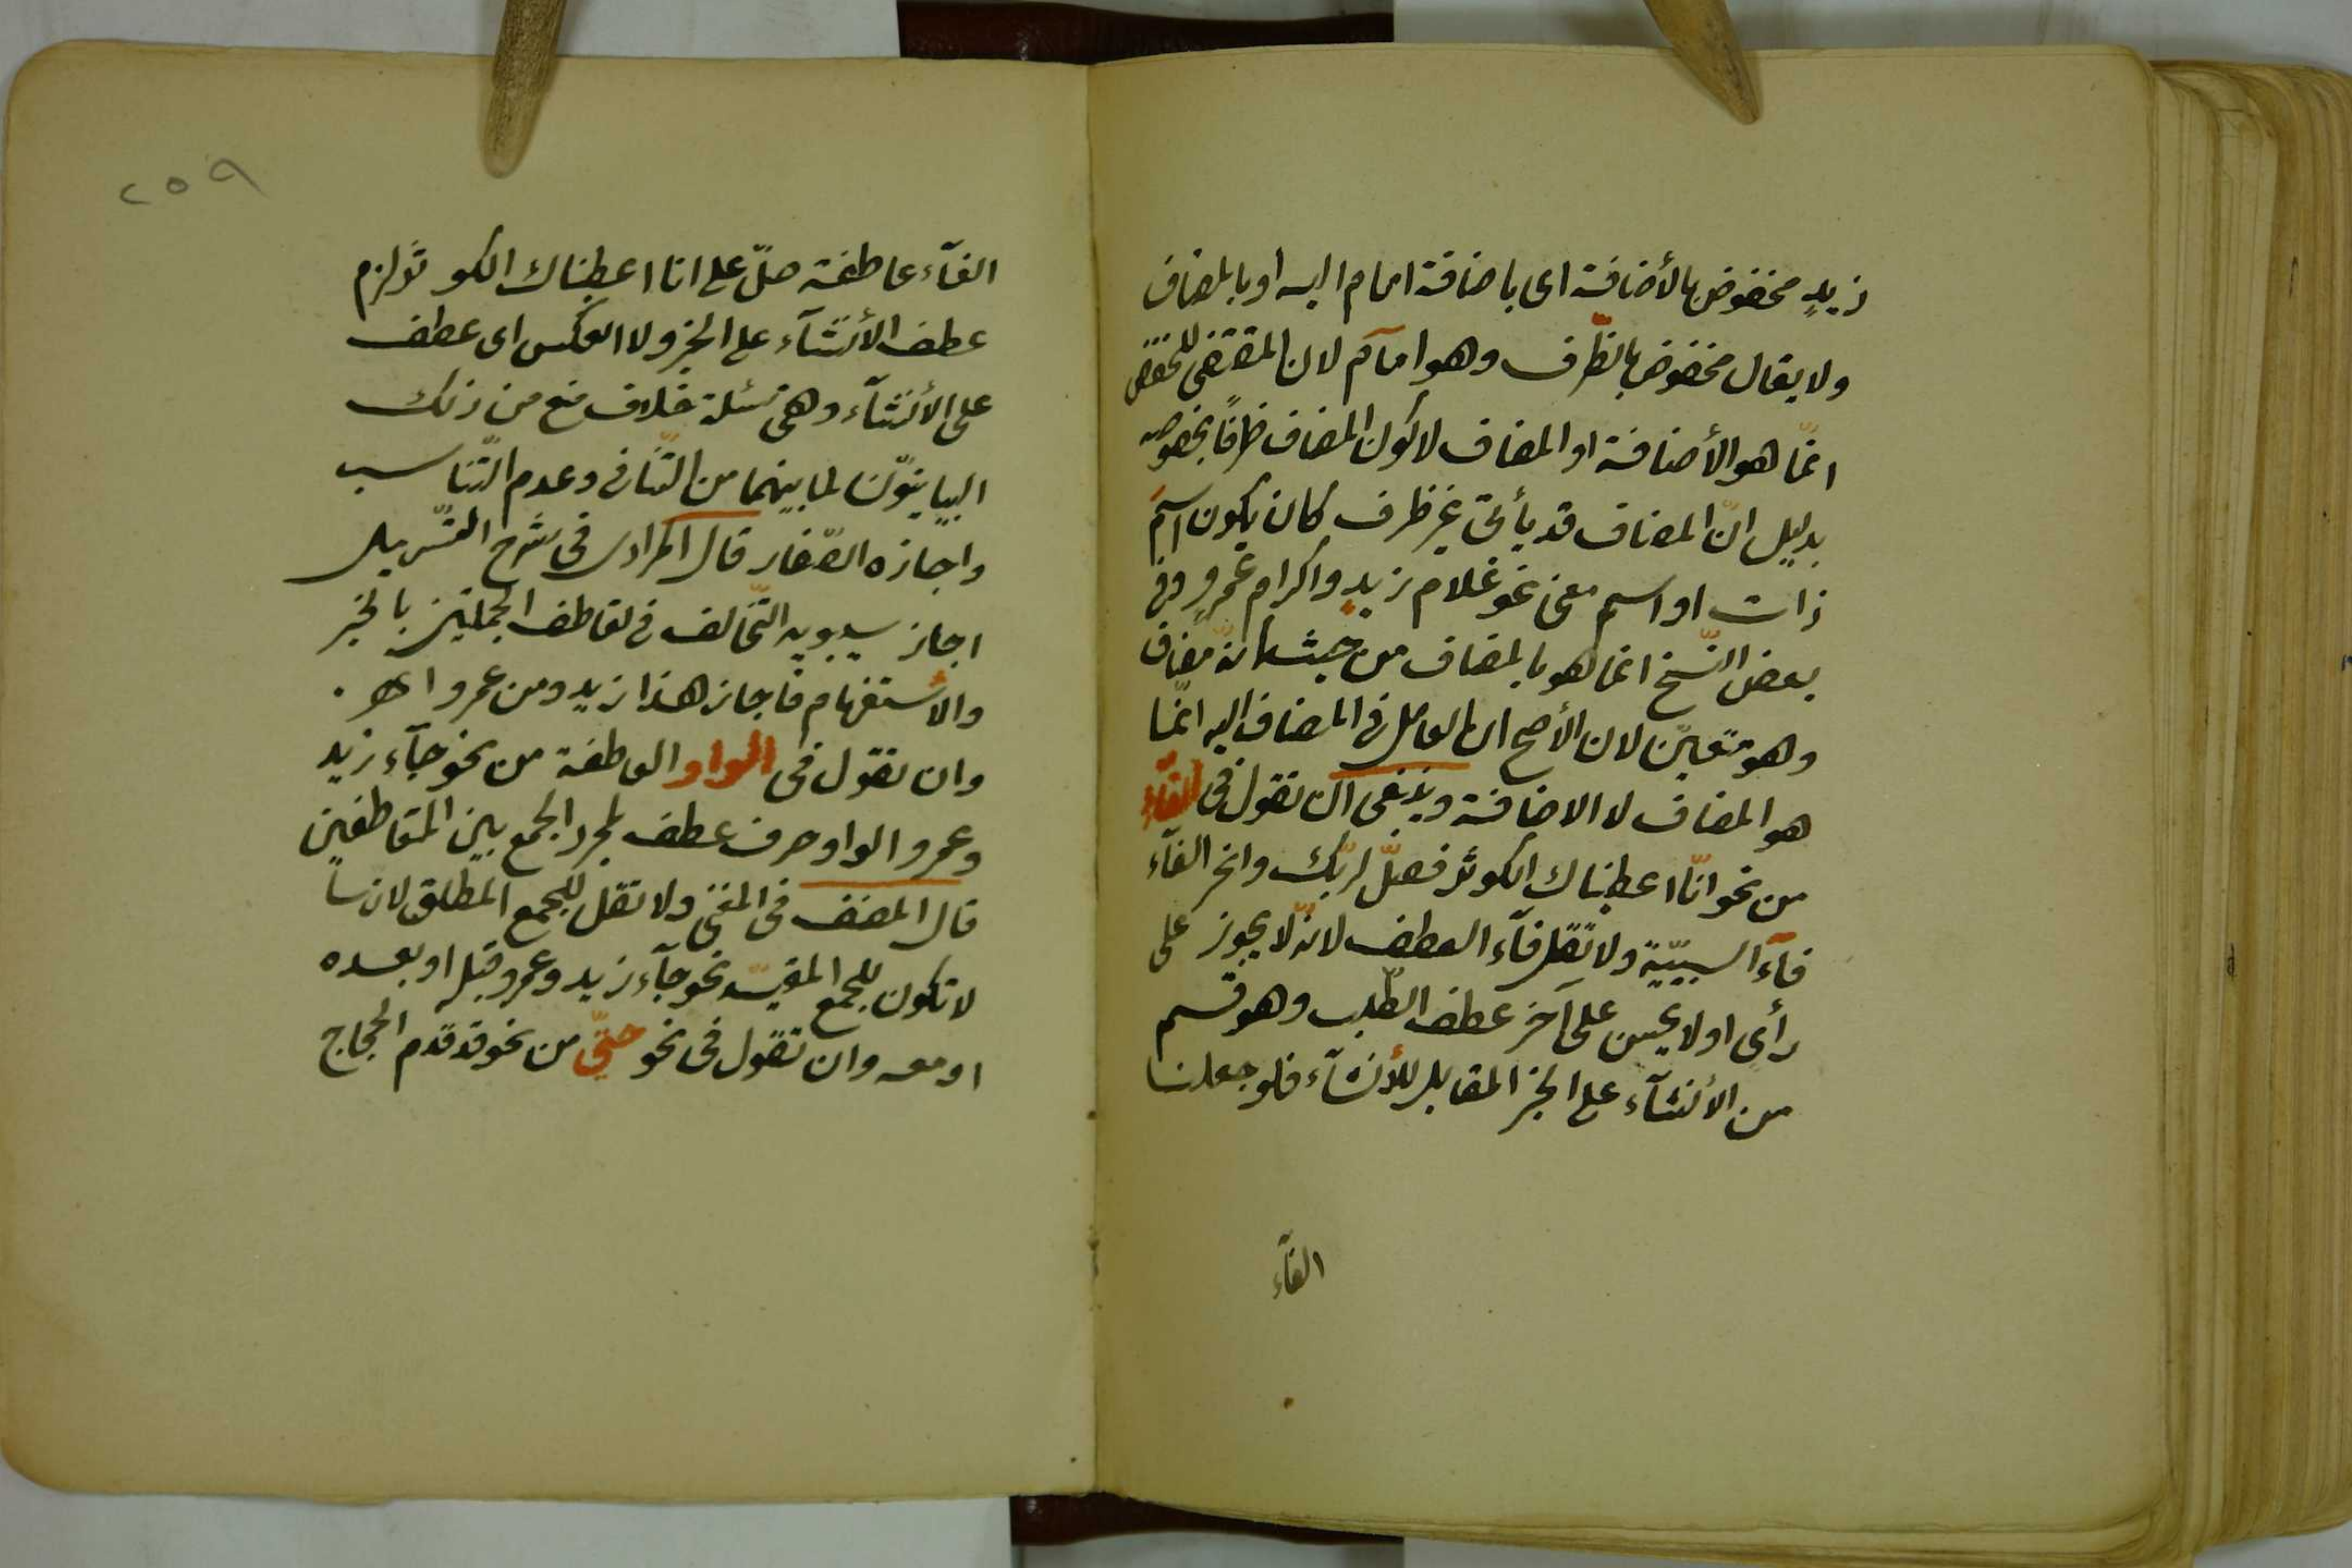 زيدٍ مخفوض بالأضافة اى باضافة امام اليه او بالمضاف
ولا يقال مخفوض بالظّرف وهو امآم لان المقتضى للخفض
انمّا هو الأضافة او المضاف لا كون المضاف ظرفًا بخصوصه
بدليل انّ المضاف قد يأتى غير ظرف كان يكون اسم
ذات او اسم معنى نحو غلام زيدٍ واكرام عمروٍ وفى
بعض النّسخ انما هو بالمضاف من حيث انّه مضاف
وهو متعيّن لان الأصح ان العامل فى المضاف اليه انمّا
هو المضاف لا الاضافة وينبغى ان تقول فى الفآء
من نحو انّا اعطيناك الكوثر فصلّ لربّك وانحر الفآء
فآء السببيّة ولا تقل فآء العطف لانّه لا يجوز على
رأى او لا يحسن على آخر عطف الطلب وهو قسم
من الأنشآء على الخبر المقابل للأنشآء فلو جعلنا
الفآء
٢٥٩
الفآء عاطفة صلّ على انا اعطيناك الكوثر لزم
عطف الأنشآء على الخبر ولا العكس اى عطف
على الأنشآء وهى مسئلة خلاف منع من ذلك
البيانيّون لما بينهما من التّنافى وعدم التّناسب
واجازه الصّفار قال المرادى فى شرح التّسهيل
اجاز سيبويه التّخالف فى تعاطف الجملتين بالخبر
والأستفهام فاجاز هذا زيد ومن عمرو اھ.
وان تقول فى الواو العاطفة من نحو جآء زيد
وعمرو الواو حرف عطف لمجرد الجمع بين المتعاطفين
قال المصنف فى المغنى ولا تقل للجمع المطلق لانها
لا تكون للجمع المقيّد نحو جآء زيد وعمرو قبله او بعده
او معه وان تقول فى نحو حتّى من نحو قد قدم الحجاج